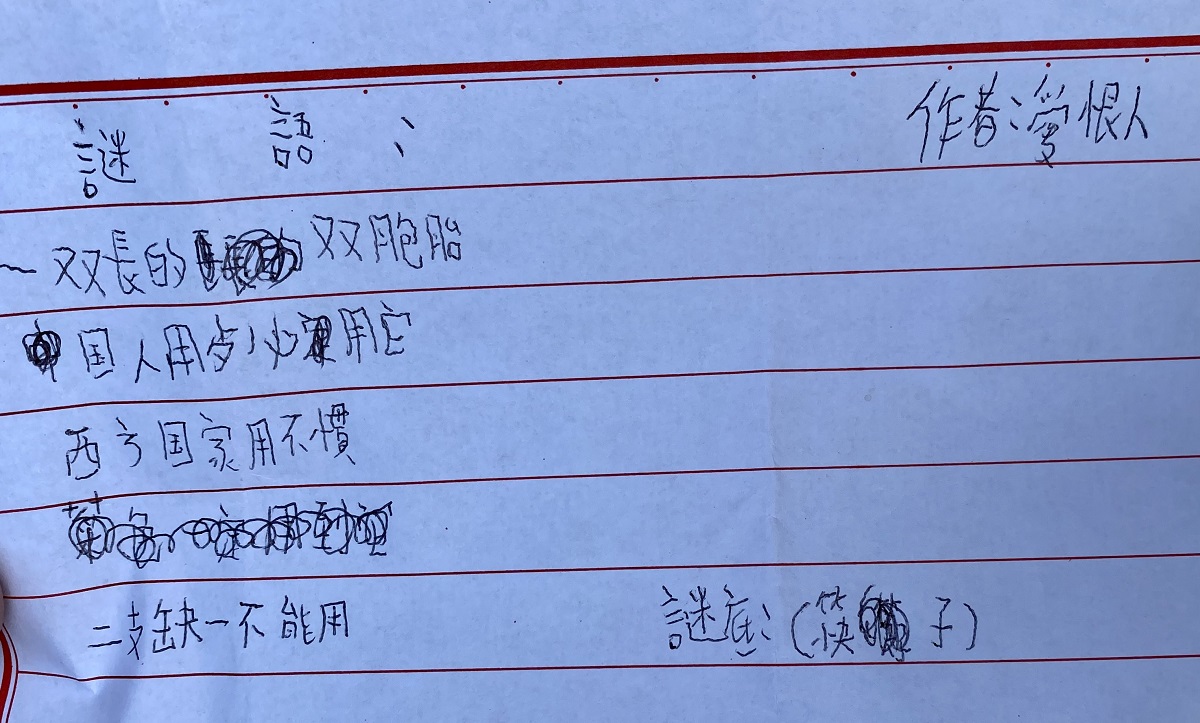 謎 語： 作者：愛恨人
一双長的双胞胎
国人用歺必用它
西方国家用不慣
二支缺一不能用 謎底：(筷子)